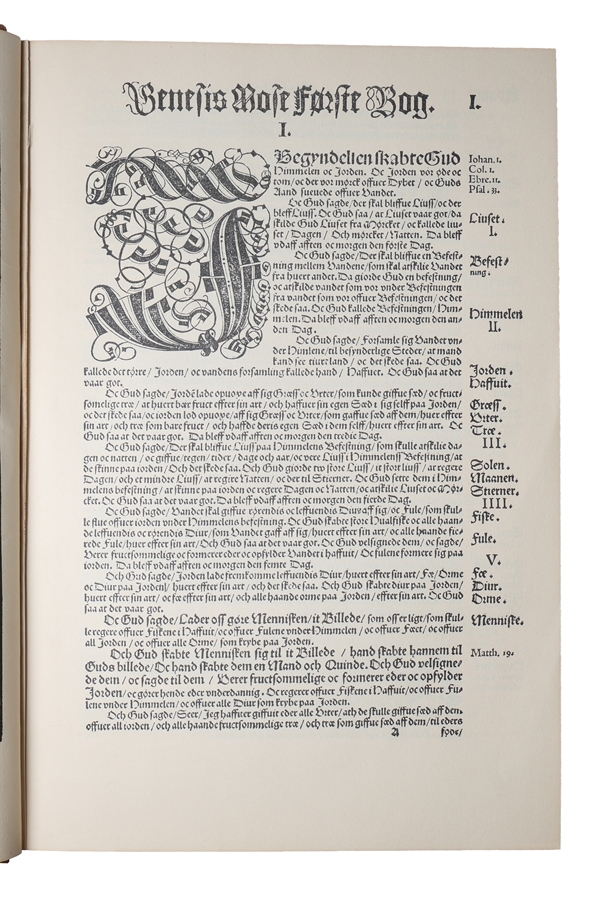 Genesis Mose Første Bog. I.
I.
Begyndelsen skabte Gud
Himmelen oc Jorden. Oc Jorden vor øde oc
tom/ oc der vor mørck offuer Dybet/ oc Guds
Aand sueuede offuer Vandet.
Oc Gud sagde/ der skal bliffue Liuss/ oc der
bleff Liuss. Oc Gud saa/ at Liuset vaar got/ da
skilde Gud Liuset fra Mørcket/ oc kallede liu-
set/ Dagen/ Och mørcket/ Natten. Da bleff
vdaff afften oc morgen den første Dag.
Oc Gud sagde/ Der skal bliffue en Befest-
ning mellem Vandene/ som skal atskilie Vandet
fra huert andet. Da giorde Gud en befestning/
oc atskilde vandet som vor vnder Befestningen
fra vandet som vor offuer Befestningen/ oc det
skede saa. Oc Gud kallede Befestningen/ Him-
melen. Da bleff vdaff afften oc morgen den an-
den Dag.
Oc Gud sagde/ Forsamle sig Vandet vn-
der Himlene/ til besynderlige Steder/ at mand
kand see tiurt land/ oc det skede saa. Oc Gud
kallede det tørre/ Jorden/ oc vandens forsamling kallede hand/ Haffuet. Oc Gud saa at det
vaar got.
Oc Gud sagde/ Jordē lade opuoxe aff sig Græss oc Vrter/ som kunde giffue sæd/ oc fruct-
sommelige træ/ at huert bær fruct effter sin art/ oc haffuer sin egen Sæd i sig self paa Jorden/
oc det skede saa/ oc iorden lod opuoxe/ aff sig Græss oc Vrter/ som gaffue sæd aff dem/ huer effter
sin art/ oc træ som bare fruct/ oc haffde deris egen Sæd i dem self/ huert effter sin art. Oc
Gud saa at det vaar got. Da bleff vdaff afften oc morgen den tredie Dag.
Oc Gud sagde/ Der skal bliffue Liuss paa Himmelens Befestning/ som skulle atskilie da-
gen oc natten/ oc giffue tegen/ tider/ dage oc aar/ oc vere Liuss i Himmelens Befestning/ at
de skinne paa iorden/ Och det skede saa. Och Gud giorde tvo store Liuss/ it stort liuss/ at regere
Dagen/ och et mindre Liuss/ at regire Natten/ oc der til Stierner. Oc Gud sette dem i Him-
melens befestning/ at skinne paa iorden oc regere Dagen oc Natten/ oc atskilie Liuset oc Mør-
cket. Oc Gud saa at det vaar got. Da bleff vdaff afften oc morgen den fierde Dag.
Oc Gud sagde/ Vandet skal giffue rørendis oc leffuendis Diur aff sig/ oc Fule/ som skul-
le flue offuer iorden vnder Himmelens befestning. Oc Gud skabte store Hualfiske oc alle haan-
de leffuendis oc rørendis Diur/ som Vandet gaff aff sig/ huert effter sin art/ oc alle haande fie-
rede Fule/ huer effter sin art/ Och Gud saa at det vaar got. Oc Gud velsignede dem/ oc sagde/
Verer fructsommelige oc formerer eder oc opfylder Vandet i haffuit/ Oc fulene formere sig paa
iorden. Da bleff vdaff afften oc morgen den femte Dag.
Och Gud sagde/ Jorden lade fremkomme leffuendis Diur/ huert effter sin art/ Fæ/ Orme
oc Diur paa Jorden/ huert effter sin art/ och det skede saa. Och Gud skabte diur paa Jorden/
huert effter sin art/ oc fæ effter sin art/ och alle haande orme paa iorden/ effter sin art. Oc Gud
saa at det vaar got.
Oc Gud sagde/ Lader oss gøre Mennisken/ it Billede/ som oss er ligt/ som skul-
le regere offuer Fiskene i Haffuit/ oc offuer Fulene vnder Himmelen/ oc offuer Fæet/ oc offuer
all Jorden/ oc offuer alle Orme/ som krybe paa Jorden.
Och Gud skabte Mennisken sig til it Billede/ hand skabte hannem til
Guds billede/ Oc hand skabte dem en Mand och Quinde. Och Gud velsigne-
de dem/ oc sagde til dem/ Verer fructsommelige oc formerer eder oc opfylder
Jorden/ oc gører hende eder vnderdannig. Oc regerer offuer Fiskene i Haffuit/ oc offuer Fu-
lene vnder Himmelen/ oc offuer alle Diur som krybe paa Jorden.
Och Gud sagde/ Seer/ Jeg haffuer giffuit eder alle Vrter/ ath de skulle giffue sæd aff dem/
offuer all iorden/ och alle haande fructsommelige træ/ och træ som giffue sæd aff dem/ til eders
A
spøs/
Iohan. 1.
Col. 1.
Ebre. 11.
Psal. 33.
Liuset.
I.
Befest-
ning.
Himmelen
II.
Jorden.
Haffuit.
Græss.
Vrter.
Træ.
III.
Solen.
Maanen.
Stierner.
IIII.
Fiske.
Fule.
V.
Fæ.
Diur.
Orme.
Menniske.
Matth. 19.